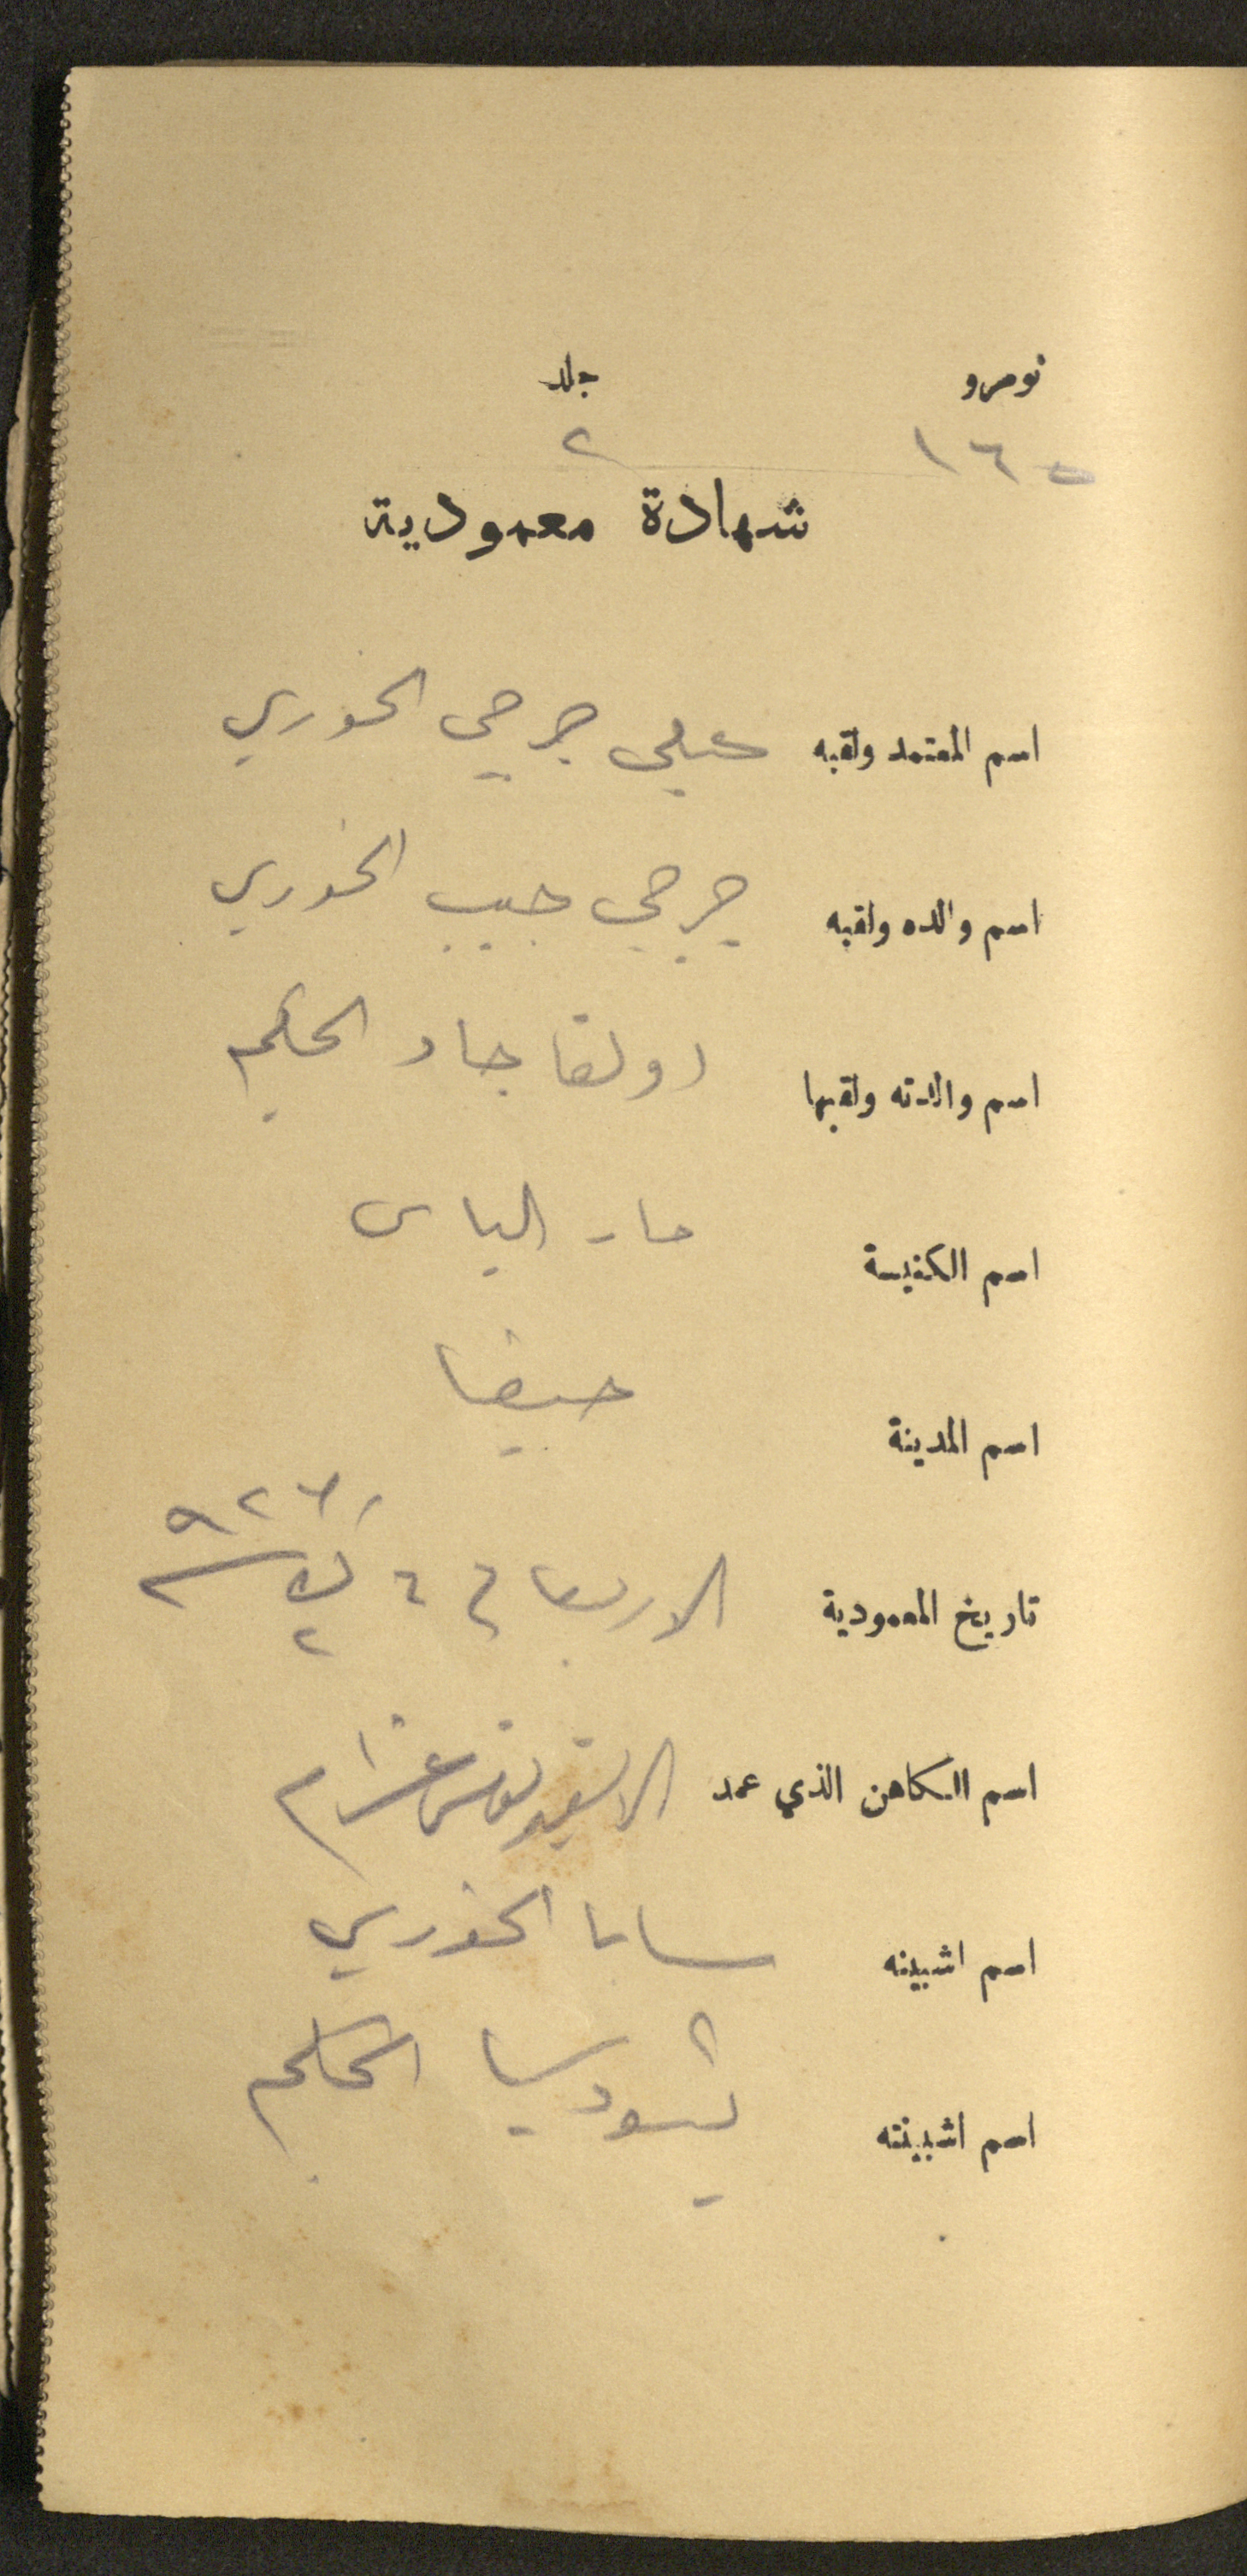 نومرو جلد
١٦٥ ٢
شهادة معمودية
اسم المعتمد ولقبه جرجي الخوري
اسم والده ولقبه جرجي حبيب الخوري
اسم والدته ولقبها جاد الحكيم
اسم الكنيسة مار الياس
اسم المدينة حيفا
تاريخ المعمودية الاربعا في ٦ ك٢ سنة ٩٢٦
اسم الكاهن الذي عمد
اسم اشبينه سابا الخوري
اسم اشبينته الحكيم